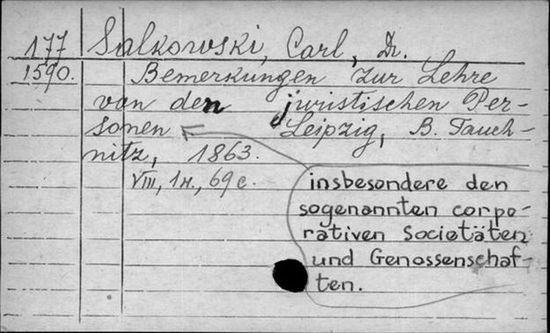 177
1590.
Salkowski, Carl, Dr.
Bemerkungen zur Lehre
von den juristischen Per-
sonen Leipzig, B. Tauch-
nitz, 1863.
VIII, 1н., 69 с.
insbesondere den
sogenannten corpo-
rativen Societäten
und Genossenschaf-
ten.